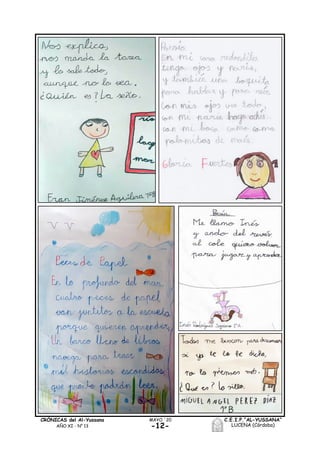 Nos explica,
nos manda la tarea
y lo sabe todo,
aunque no lo vea.
¿Quién es? La seño.
río
lago
mar
Fran Jiménez Aguilera 1ºB
Poesía
En mi cara redondita
tengo ojos y nariz,
y también una boquita
para hablar y para reír.
Con mis ojos veo todo,
con mi nariz hago achís,
con mi boca como como
palomitas de maíz.
Gloria Fuertes
Peces de Papel
En lo profundo del mar
cuatro peces de papel
van juntitos a la escuela
porque quieren aprender.
Un barco lleno de libros
navega para traer
mil historias escondidas
que pronto podrán leer.
Poesía
Me llamo Inés
y ando del revés
al cole quiero volver
para jugar y aprender.
Inés Rodríguez
Todos me buscan para descansar
si ya te lo he dicho,
no lo pienses más.
¿Qué es? la silla.
MIGUEL ANGEL PEREZ DÍAZ
1ºB
CRÓNICAS del Al-Yussana
AÑO XI · Nº 13
MAYO ´20
-12-
C.E.I.P "AL-YUSSANA"
LUCENA (Córdoba)